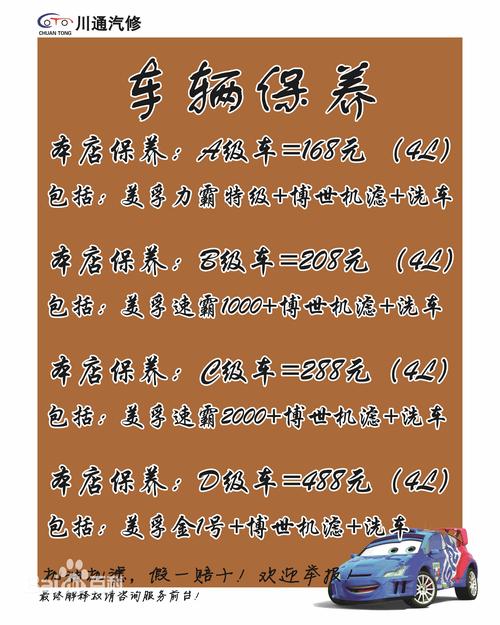 川通汽修
CHUAN TONG
车辆保养
本店保养：A级车=168元（4L）
包括：美孚力霸特级+博世机滤+洗车
本店保养：B级车=208元（4L）
包括：美孚速霸1000+博世机滤+洗车
本店保养：C级车=288元（4L）
包括：美孚速霸2000+博世机滤+洗车
本店保养：D级车=488元（4L）
包括：美孚金1号+博世机滤+洗车
假一赔十！欢迎举报！
百科
最终解释权请咨询服务前台！